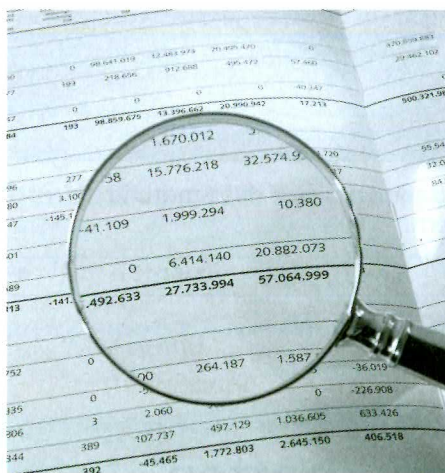 0 98.641.019 12.483.973 20.495.420 0 470.859.883
193 218.656 912.688 495.472 57.460 29.462.102
0 0 0 0 -40.247
193 98.859.675 13.396.662 20.990.942 17.213 500.321.98
1.670.012
277 58 15.776.218 32.574.9 .720 55.54
3.100 32.0
-145.1 -41.109 1.999.294 10.380 84
0 6.414.140 20.882.073
-141. .492.633 27.733.994 57.064.999
752 0 00 264.187 1.587 -36.019
335 0 0 -226.908
806 3 2.060 497.129 1.036.605 633.426
344 389 107.737 1.772.803 2.645.150 406.518
392 -45.465